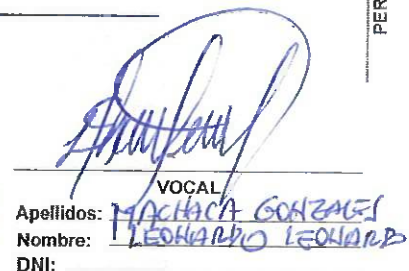 PER
VOCAL
Apellidos: MACHACA GONZALES
Nombre: LEONARDO LEONARD
DNI: